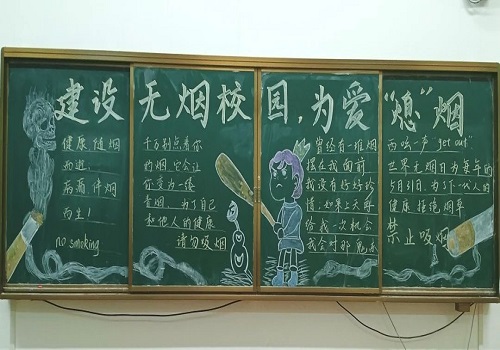 建设无烟校园,为爱“熄”烟
健康随烟
而逝,
病痛伴烟
而生!
no smoking
千万别点着你
的烟,它会让
你变为一缕
青烟。为了自己
和他人的健康
请勿吸烟
曾经有一堆烟
摆在我面前
我没有好好珍
惜,如果上天再
给我一次机会
我会对那鬼东
西吼一声"get out"
世界无烟日为每年的
5月31日,为了下一代人的
健康 拒绝烟草
禁止吸烟